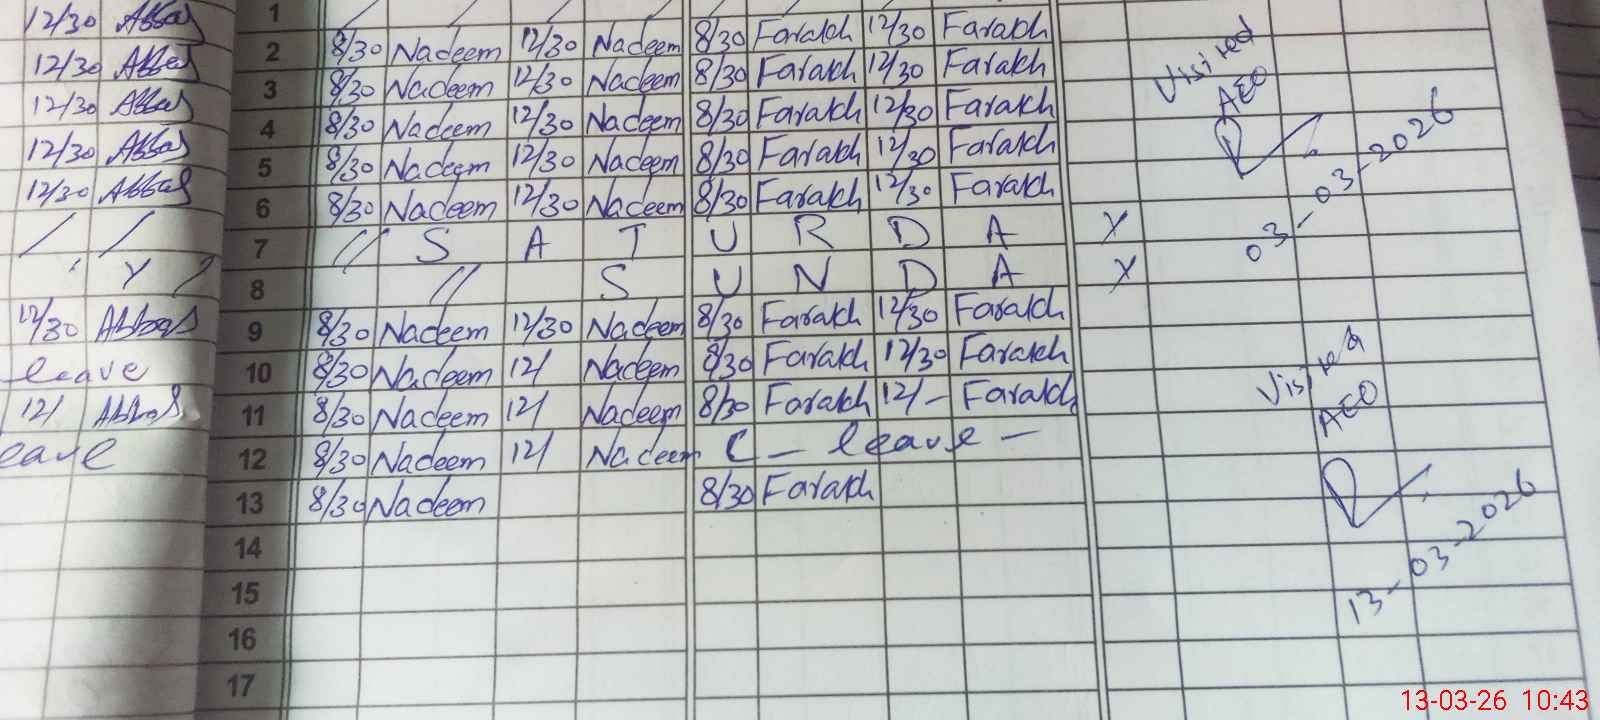 1
12/30 Abbas 2 8/30 Nadeem 12/30 Nadeem 8/30 Farakh 12/30 Farakh
12/30 Abbas 3 8/30 Nadeem 12/30 Nadeem 8/30 Farakh 12/30 Farakh
12/30 Abbas 4 8/30 Nadeem 12/30 Nadeem 8/30 Farakh 12/30 Farakh
12/30 Abbas 5 8/30 Nadeem 12/30 Nadeem 8/30 Farakh 12/30 Farakh
12/30 Abbas 6 8/30 Nadeem 12/30 Nadeem 8/30 Farakh 12/30 Farakh
/ / 7 // S A T U R D A Y
Y 8 // S U N D A Y
12/30 Abbas 9 8/30 Nadeem 12/30 Nadeem 8/30 Farakh 12/30 Farakh
leave 10 8/30 Nadeem 12/ Nadeem 8/30 Farakh 12/30 Farakh
12/ Abbas 11 8/30 Nadeem 12/ Nadeem 8/30 Farakh 12/- Farakh
eave 12 8/30 Nadeem 12/ Nadeem C - leave -
13 8/30 Nadeem 8/30 Farakh
14
15
16
17
Visited
AEO
03-03-2026
Visited
AEO
13-03-2026
13-03-26 10:43